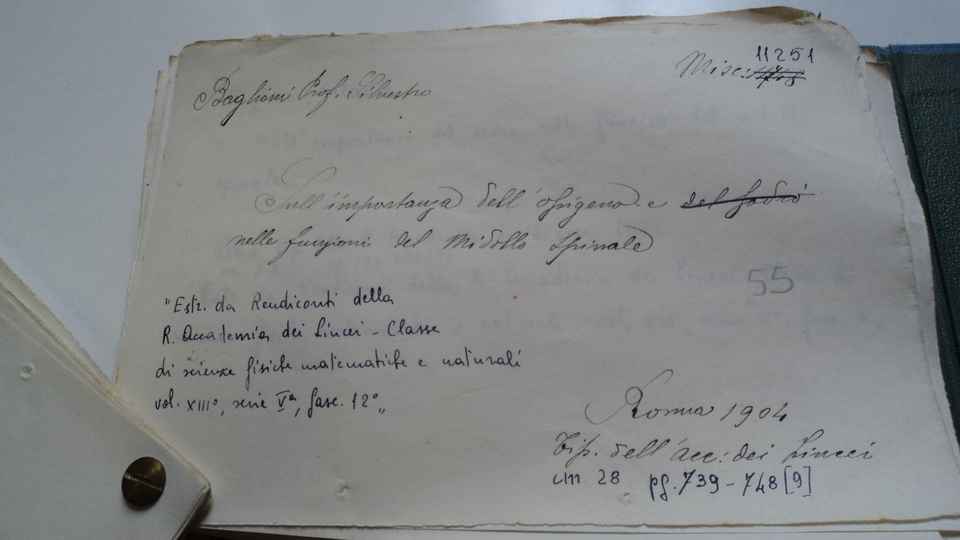 11251
Misc:
Baglioni Prof. Silvestro
Sull'importanza dell'ossigeno e del sodio
nelle funzioni del midollo spinale
55
"Estr. da Rendiconti della
R. Accademia dei Lincei - Classe
di scienze fisiche matematiche e naturali
vol. XIIIº, serie Vª, fasc. 12º„
Roma 1904
Tip. dell'acc: dei Lincei
cm 28 pg. 739-748 [9]